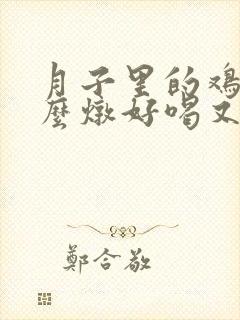 月子里的鸡
麽燉好喝又
鄭合敬